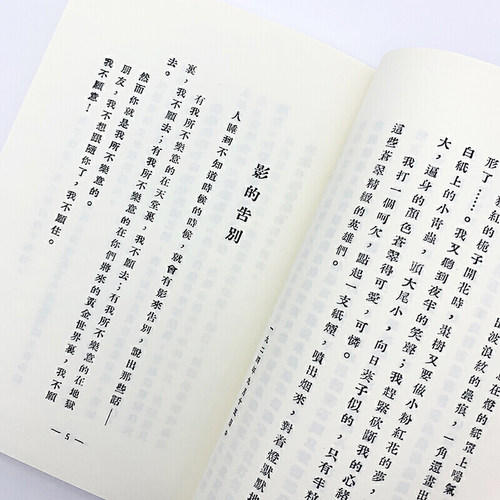 在燈的紙罩上喘氣
波浪紋的疊痕,一角還畫
紅的梔子開花時,棗樹又要做小粉紅花的夢
形了……。我又聽到夜半的笑聲;我趕緊砍斷我的心緒
白紙上的小青蟲,頭大尾小,向日葵子似的,只有半粒
大,遍身的顏色蒼翠得可愛,可憐。
我打一個呵欠,點起一支紙煙,噴出烟來,對着燈默默地
這些蒼翠精緻的英雄們。
影的告別
人睡到不知道時候的時候,就會有影來告別,說出那些話——
有我所不樂意的在天堂裏,我不願去;有我所不樂意的在地獄
裏,我不願去;有我所不樂意的在你們將來的黃金世界裏,我不願
去。
然而你就是我所不樂意的。
朋友,我不想跟隨你了,我不願住。
我不願意!
— 5 —